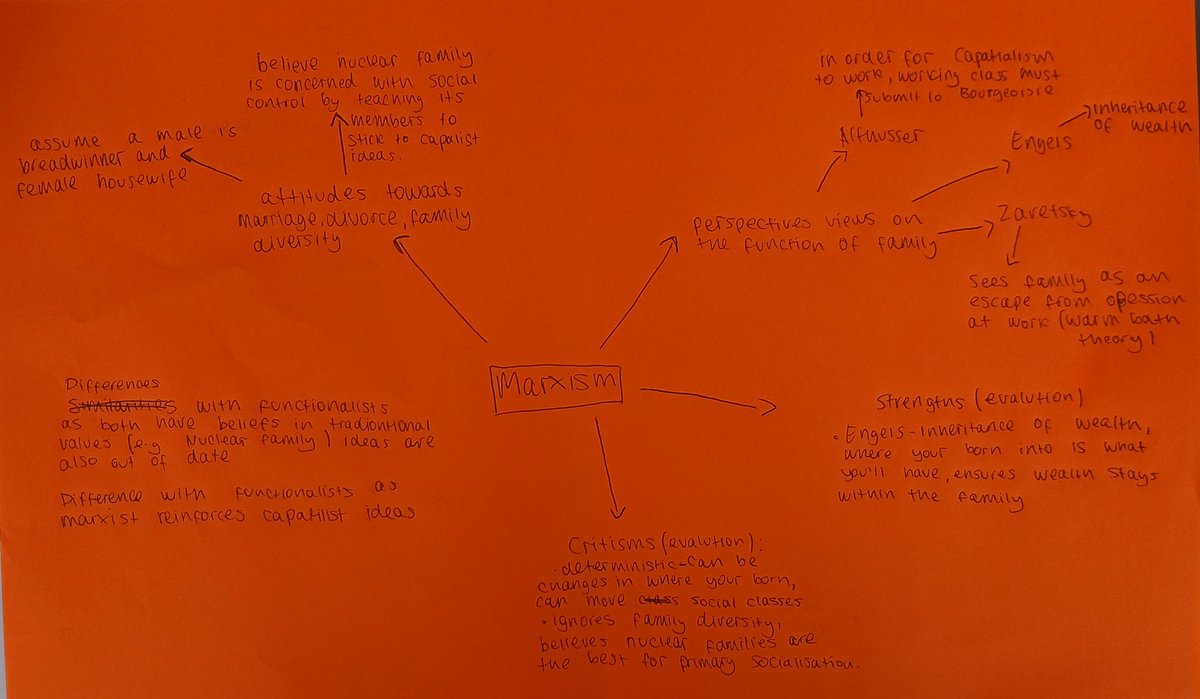 believe nuclear family
is concerned with social
control by teaching its
members to
stick to capalist
ideas.
assume a male is
breadwinner and
female housewife
attitudes towards
marriage, divorce, family
diversity
in order for Capatialism
to work, working class must
submit to Bourgeoisre
Althusser
Engels
inheritance
of wealth
perspectives views on
the function of family
Zaretsky
sees family as an
escape from opession
at work (warm bath
theory)
Marxism
Differences
Similarities with functionalists
as both have beliefs in tradiontional
values (e.g Nuclear family) ideas are
also out of date
Difference with functionalists as
marxist reinforces capatilist ideas
Strengths (evalution)
• Engels - inheritance of wealth,
where your born into is what
you'll have, ensures wealth stays
within the family
Critisms (evalution):
• deterministic - can be
changes in where your born,
can move class social classes
• ignores family diversity,
believes nuclear families are
the best for primary socialisation.